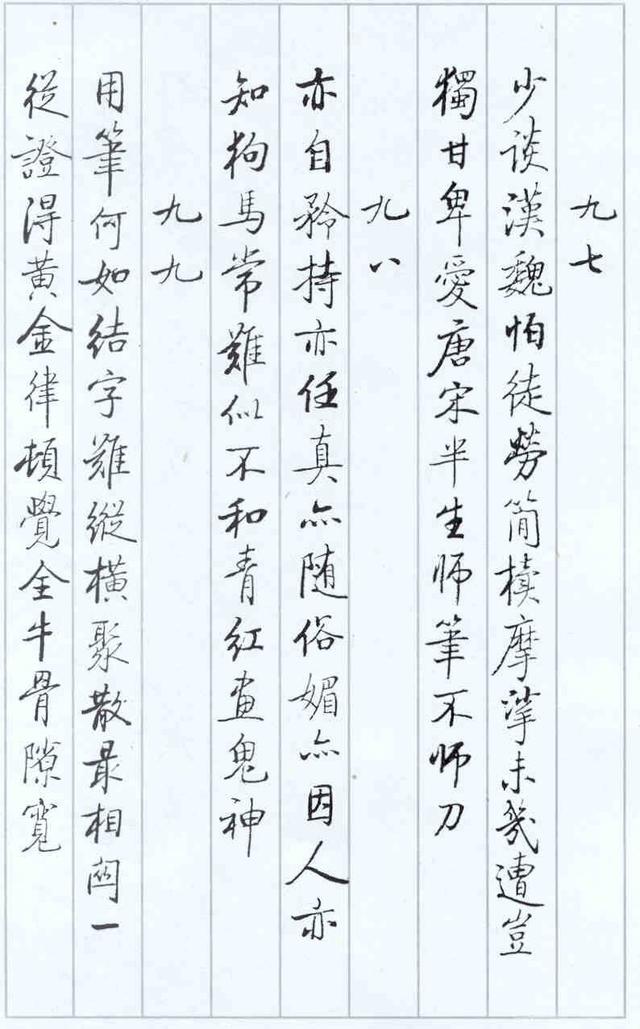 九七
少談漢魏怕徒勞簡牘摩挲未幾遭豈
獨甘卑愛唐宋半生師筆不師刀
九八
亦自矜持亦任真亦随俗媚亦因人亦
知狗馬常難似不和青紅畫鬼神
九九
用筆何如結字難縱橫聚散最相關一
從證得黃金律頓覺全牛骨隙寬